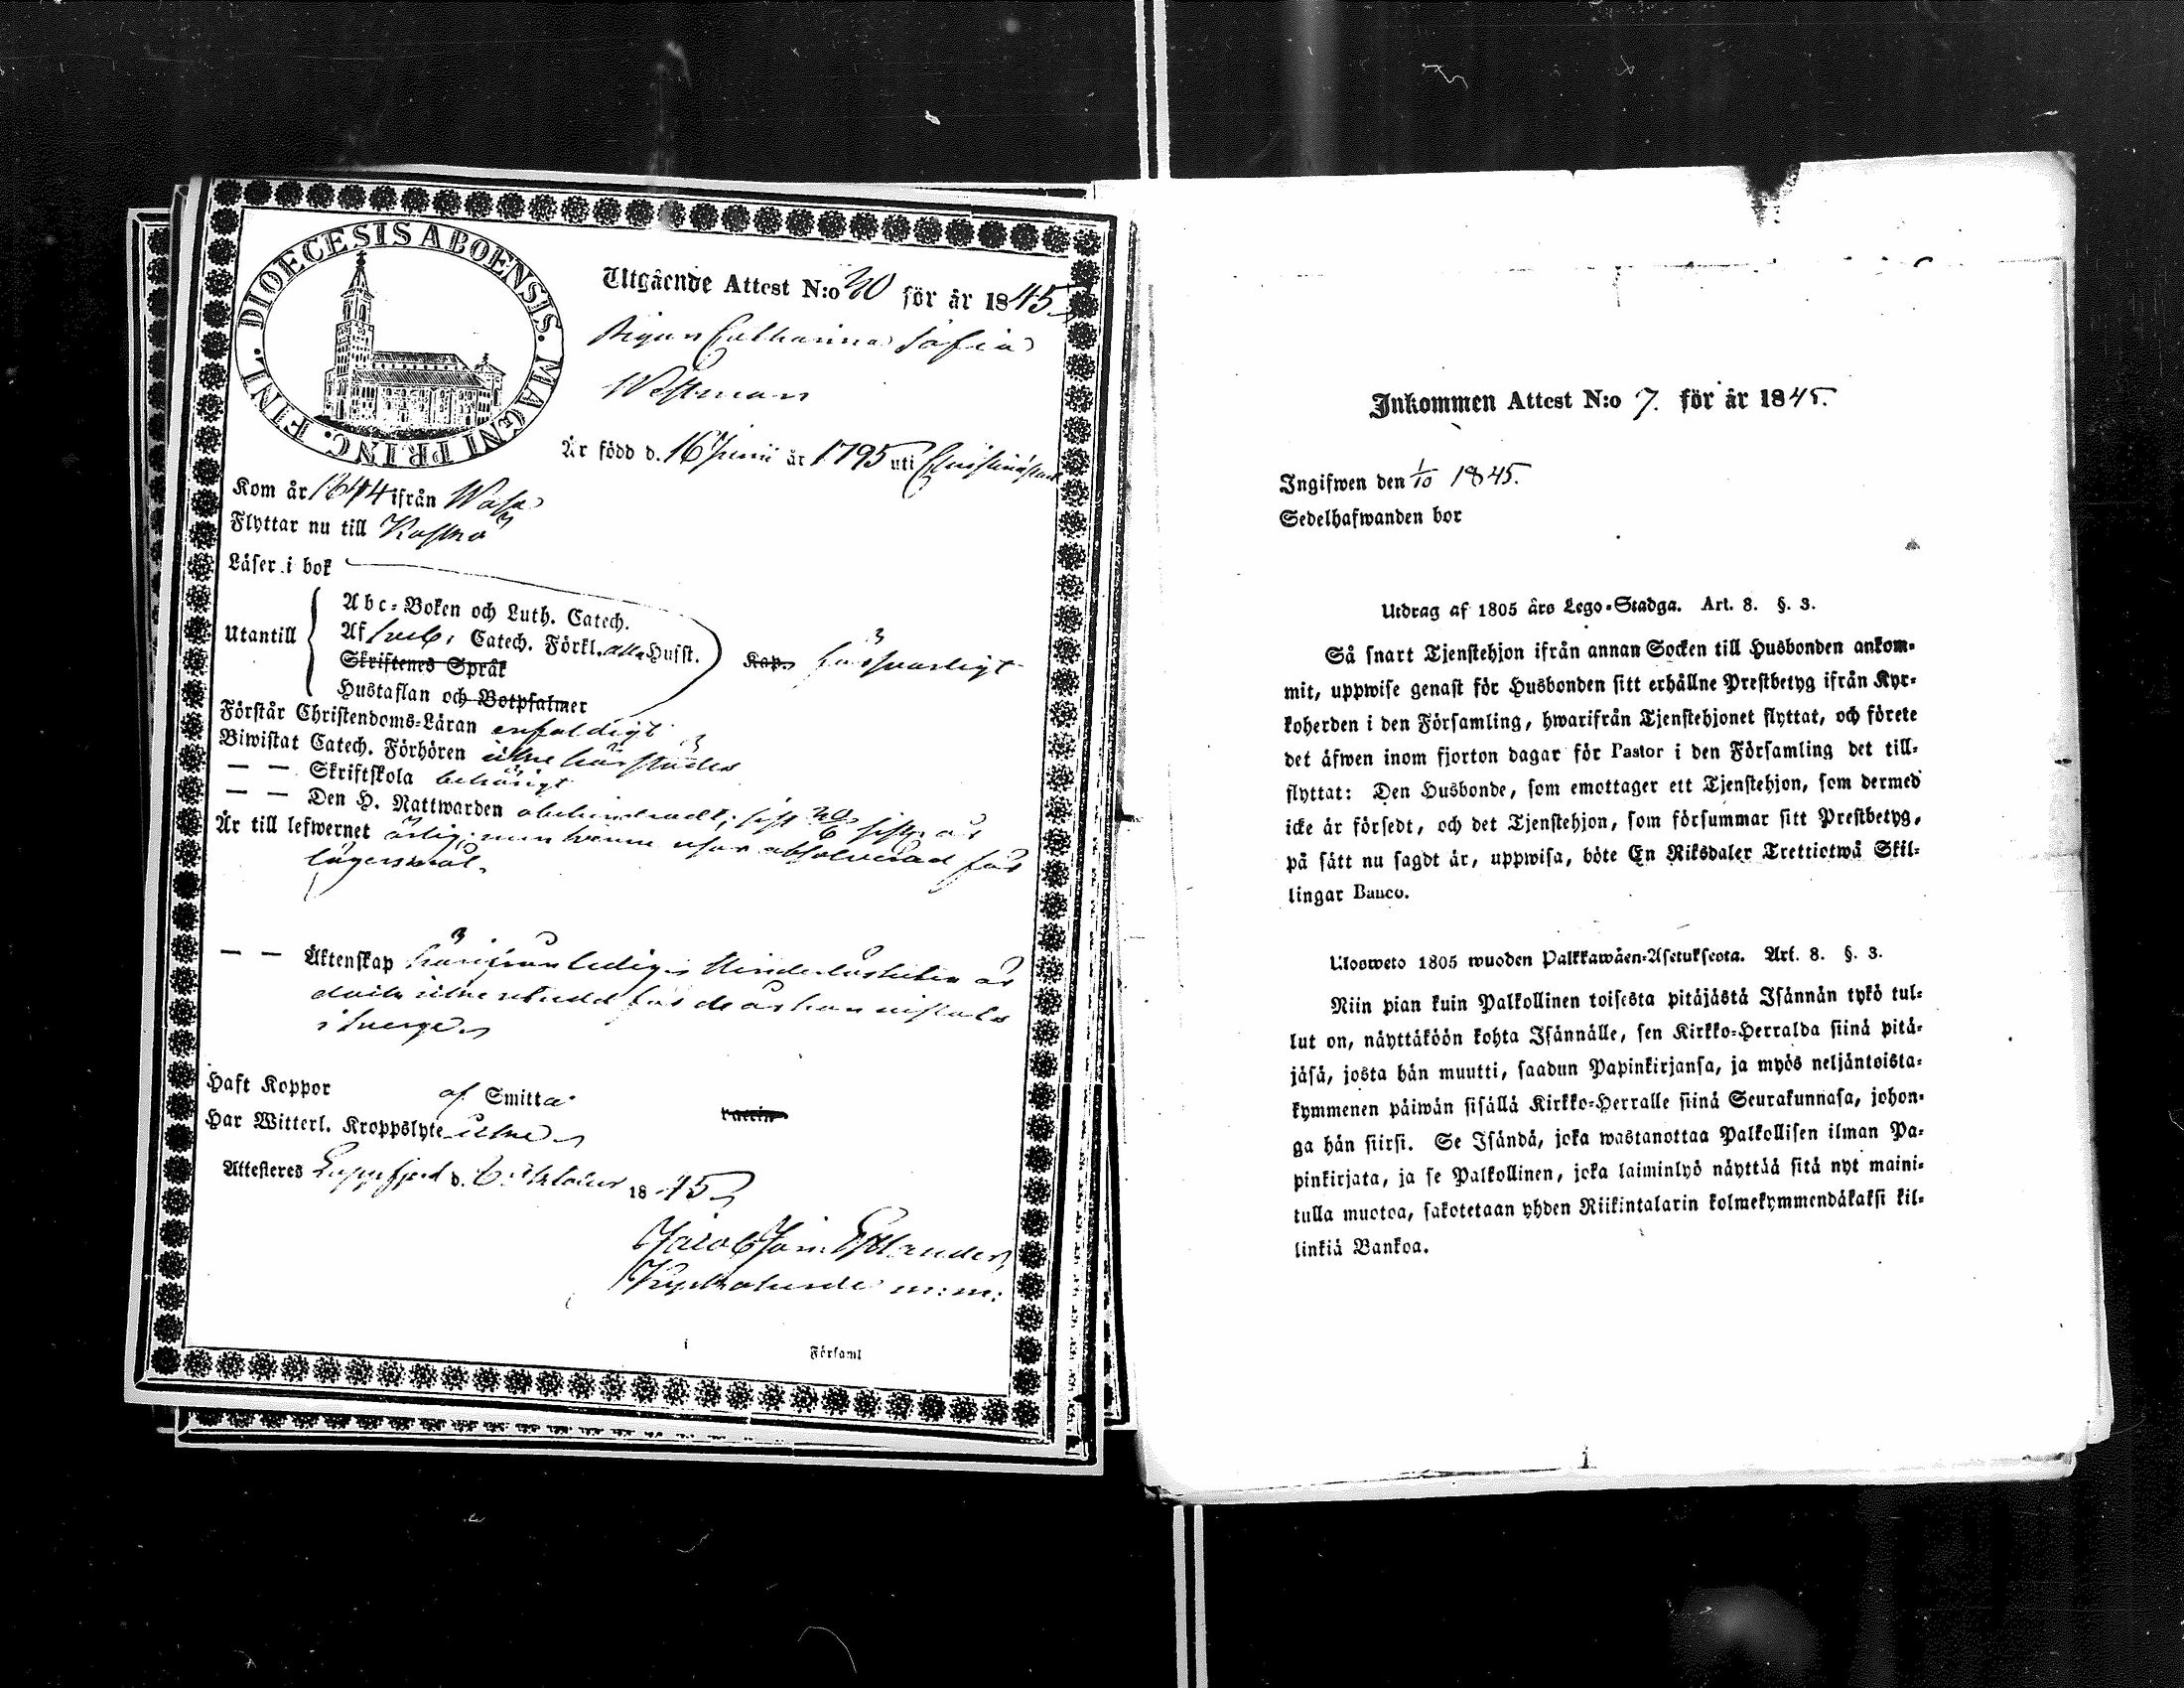 DIOECESIS ABOENSIS. MAGNI PRINC. FINL.
Utgående Attest N:o 20 för år 1845
Pigan Catharina Sofia
Westman
Är född d. 16 Junii år 1795 uti Christinestad
Kom år 1844 ifrån Wasa
Flyttar nu till Kaskö
Läser i bok
Utantill
Abc-Boken och Luth. Catech.
Af Sveb. Catech. Förkl. alla Hufst.
Skriftenes Språk
Hustaflan och Botpsalmer
Kap. försvarligt
Förstår Christendoms-Läran enfaldigt
Biwistat Catech. Förhören icke härstädes
— — Skriftskola behörigt
— — Den H. Nattwarden obehindradt, sist sistl. år
Är till lefwernet ärlig; men absolverad för
lägersmål.
— — Äktenskap ledig; Hinderlösheten är
dock icke för de år hon vistats
i Sverge
Haft Koppor af Smitta
vaccin
Har Witterl. Kroppslyte icke
Attesteres Lappfjerd d. 6 October 1845
Jacob Joh. Estlander
Kyrkoherde m:m:
Församl
Inkommen Attest N:o 7. för år 1845.
Ingifwen den 1/10 1845.
Sedelhafwanden bor
Utdrag af 1805 års Lego-Stadga. Art. 8. §. 3.
Så snart Tjenstehjon ifrån annan Socken till Husbonden ankom-
mit, uppwise genast för Husbonden sitt erhållne Prestbetyg ifrån Kyr-
koherden i den Församling, hwarifrån Tjenstehjonet flyttat, och förete
det äfwen inom fjorton dagar för Pastor i den Församling det till-
flyttat: Den Husbonde, som emottager ett Tjenstehjon, som dermed
icke är försedt, och det Tjenstehjon, som försummar sitt Prestbetyg,
på sätt nu sagdt är, uppwisa, böte En Riksdaler Trettiotwå Skil-
lingar Banco.
Ulosweto 1805 wuoden Palkkawäen-Asetuksesta. Art. 8. §. 3.
Niin pian kuin Palkollinen toisesta pitäjästä Isännän tykö tul-
lut on, näyttäköön kohta Isännälle, sen Kirkko-Herralda siinä pitä-
jäsä, josta hän muutti, saadun Papinkirjansa, ja myös neljäntoista-
kymmenen päiwän sisällä Kirkko-Herralle siinä Seurakunnasa, johon-
ga hän siirsi. Se Isändä, joka wastanottaa Palkollisen ilman Pa-
pinkirjata, ja se Palkollinen, joka laiminlyö näyttää sitä nyt maini-
tulla muotoa, sakotetaan yhden Riikintalarin kolmekymmendäkaksi kil-
linkiä Bankoa.